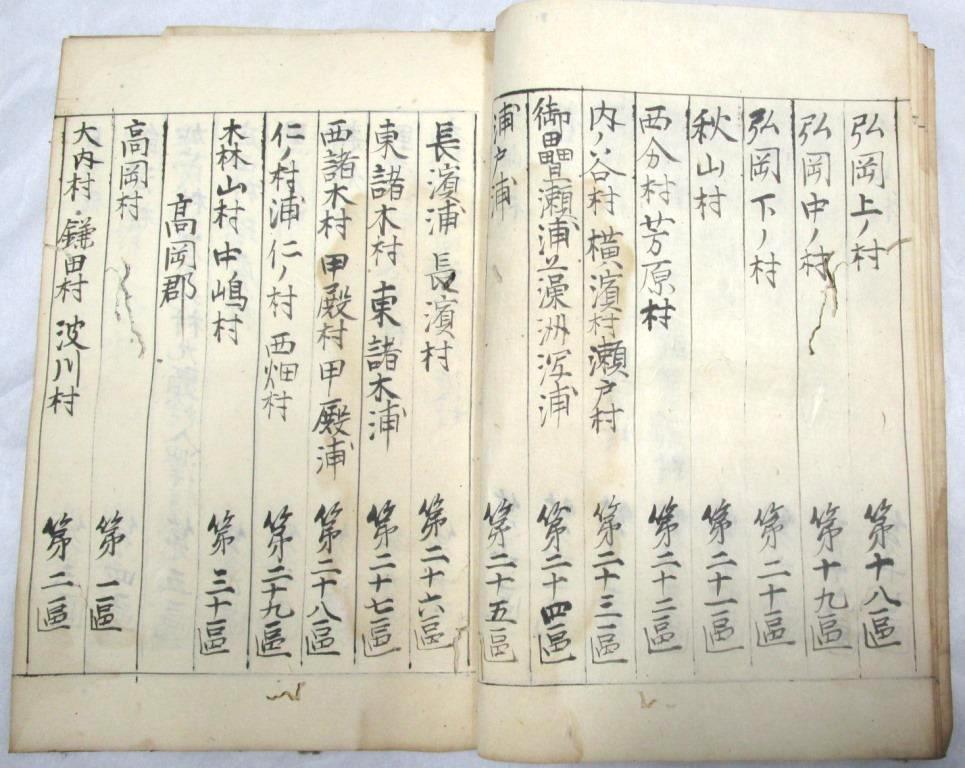 弘岡上ノ村 第十八區
弘岡中ノ村 第十九區
弘岡下ノ村 第二十區
秋山村 第二十一區
西分村 芳原村 第二十二區
内ノ谷村 横濱村 瀬戸村 第二十三區
御疊瀬浦並藻洲潟浦 第二十四區
浦戸浦 第二十五區
長濱浦 長濱村 第二十六區
東諸木村 東諸木浦 第二十七區
西諸木村 甲殿村 甲殿浦 第二十八區
仁ノ村浦 仁ノ村 西畑村 第二十九區
森山村 中嶋村 第三十區
高岡郡
高岡村 第一區
大内村 鎌田村 波川村 第二區